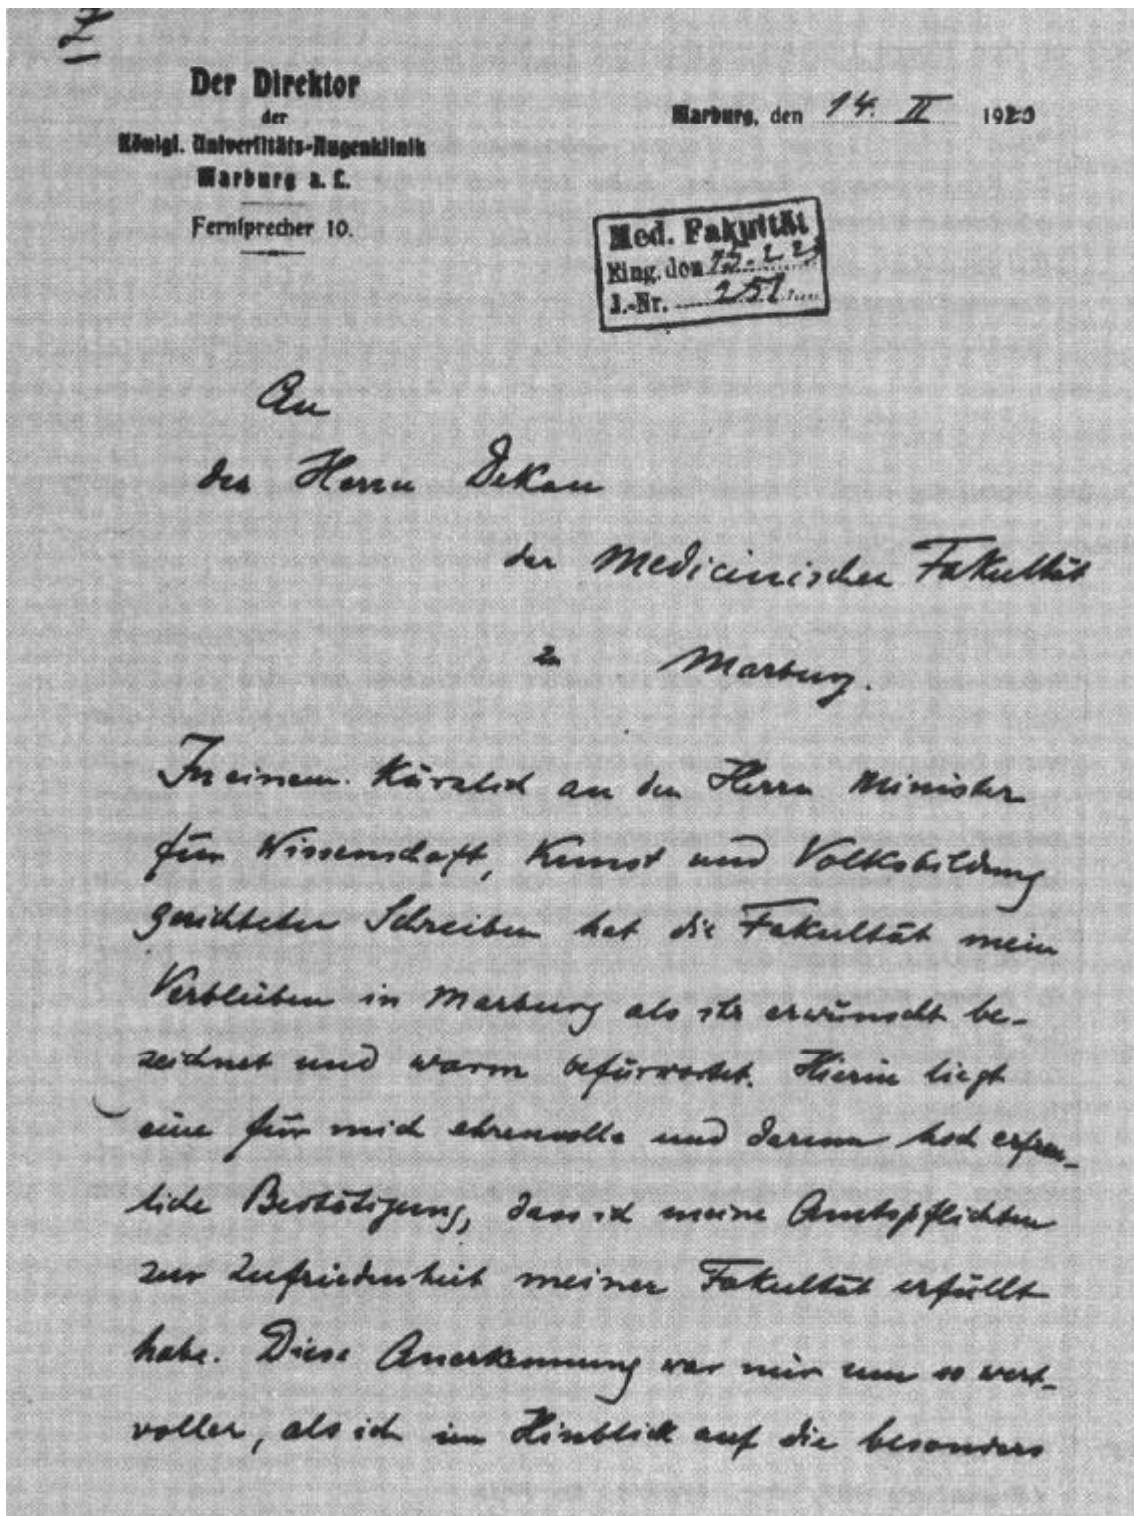 Der Direktor
der
Königl. Universitäts-Augenklinik
Marburg a. L.
Fernsprecher 10.
Marburg, den 14. II 1920
Med. Fakultät
Eing. den
J.-Nr. 251
An
den Herrn Dekan
der Medicinischen Fakultät
zu Marburg.
In einem kürzlich an den Herrn Minister
für Wissenschaft, Kunst und Volksbildung
gerichteten Schreiben hat die Fakultät mein
Verbleiben in Marburg als ihr erwünscht be-
zeichnet und warm befürwortet. Hierin liegt
eine für mich ehrenvolle und darum hoch erfreu-
liche Bestätigung, dass ich meine Amtspflichten
zur Zufriedenheit meiner Fakultät erfüllt
habe. Diese Anerkennung war mir um so wert-
voller, als ich im Hinblick auf die besonders